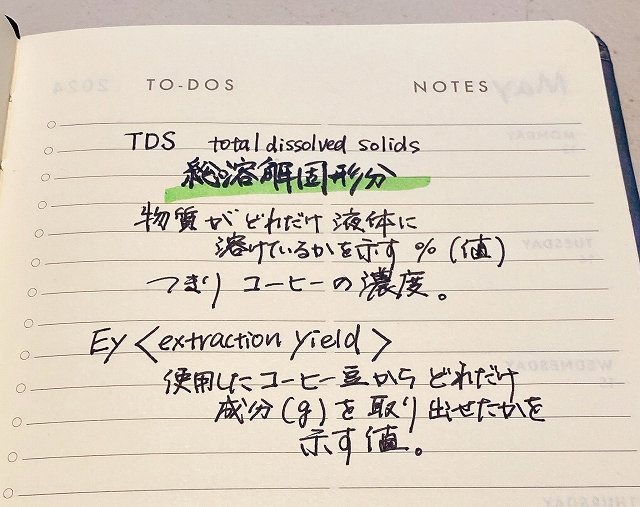 TO-DOS NOTES
TDS total dissolved solids
総溶解固形分
物質がどれだけ液体に
溶けているかを示す%(値)
つまりコーヒーの濃度。
Ey <extraction yield>
使用したコーヒー豆からどれだけ
成分(g)を取り出せたかを
示す値。
May 2024
MONDAY
TUESDAY
WEDNESDAY
15
THURSDAY